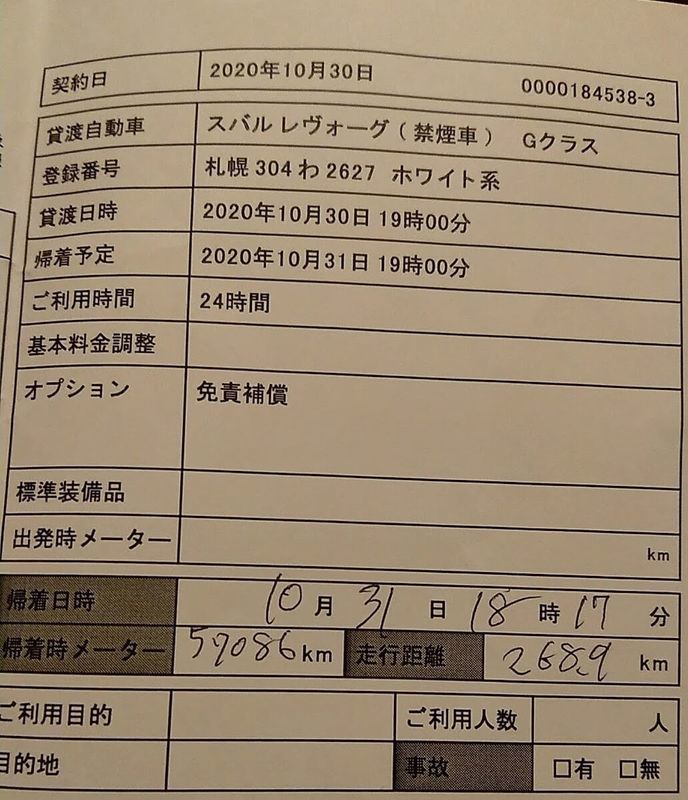 契約日 2020年10月30日 0000184538-3
貸渡自動車 スバル レヴォーグ ( 禁煙車 ) Gクラス
登録番号 札幌 304 わ 2627 ホワイト系
貸渡日時 2020年10月30日 19時00分
帰着予定 2020年10月31日 19時00分
ご利用時間 24時間
基本料金調整
オプション 免責補償
標準装備品
出発時メーター km
帰着日時 10 月 31 日 18 時 17 分
帰着時メーター 57086 km 走行距離 268.9 km
ご利用目的 ご利用人数 人
目的地 事故 □有 □無